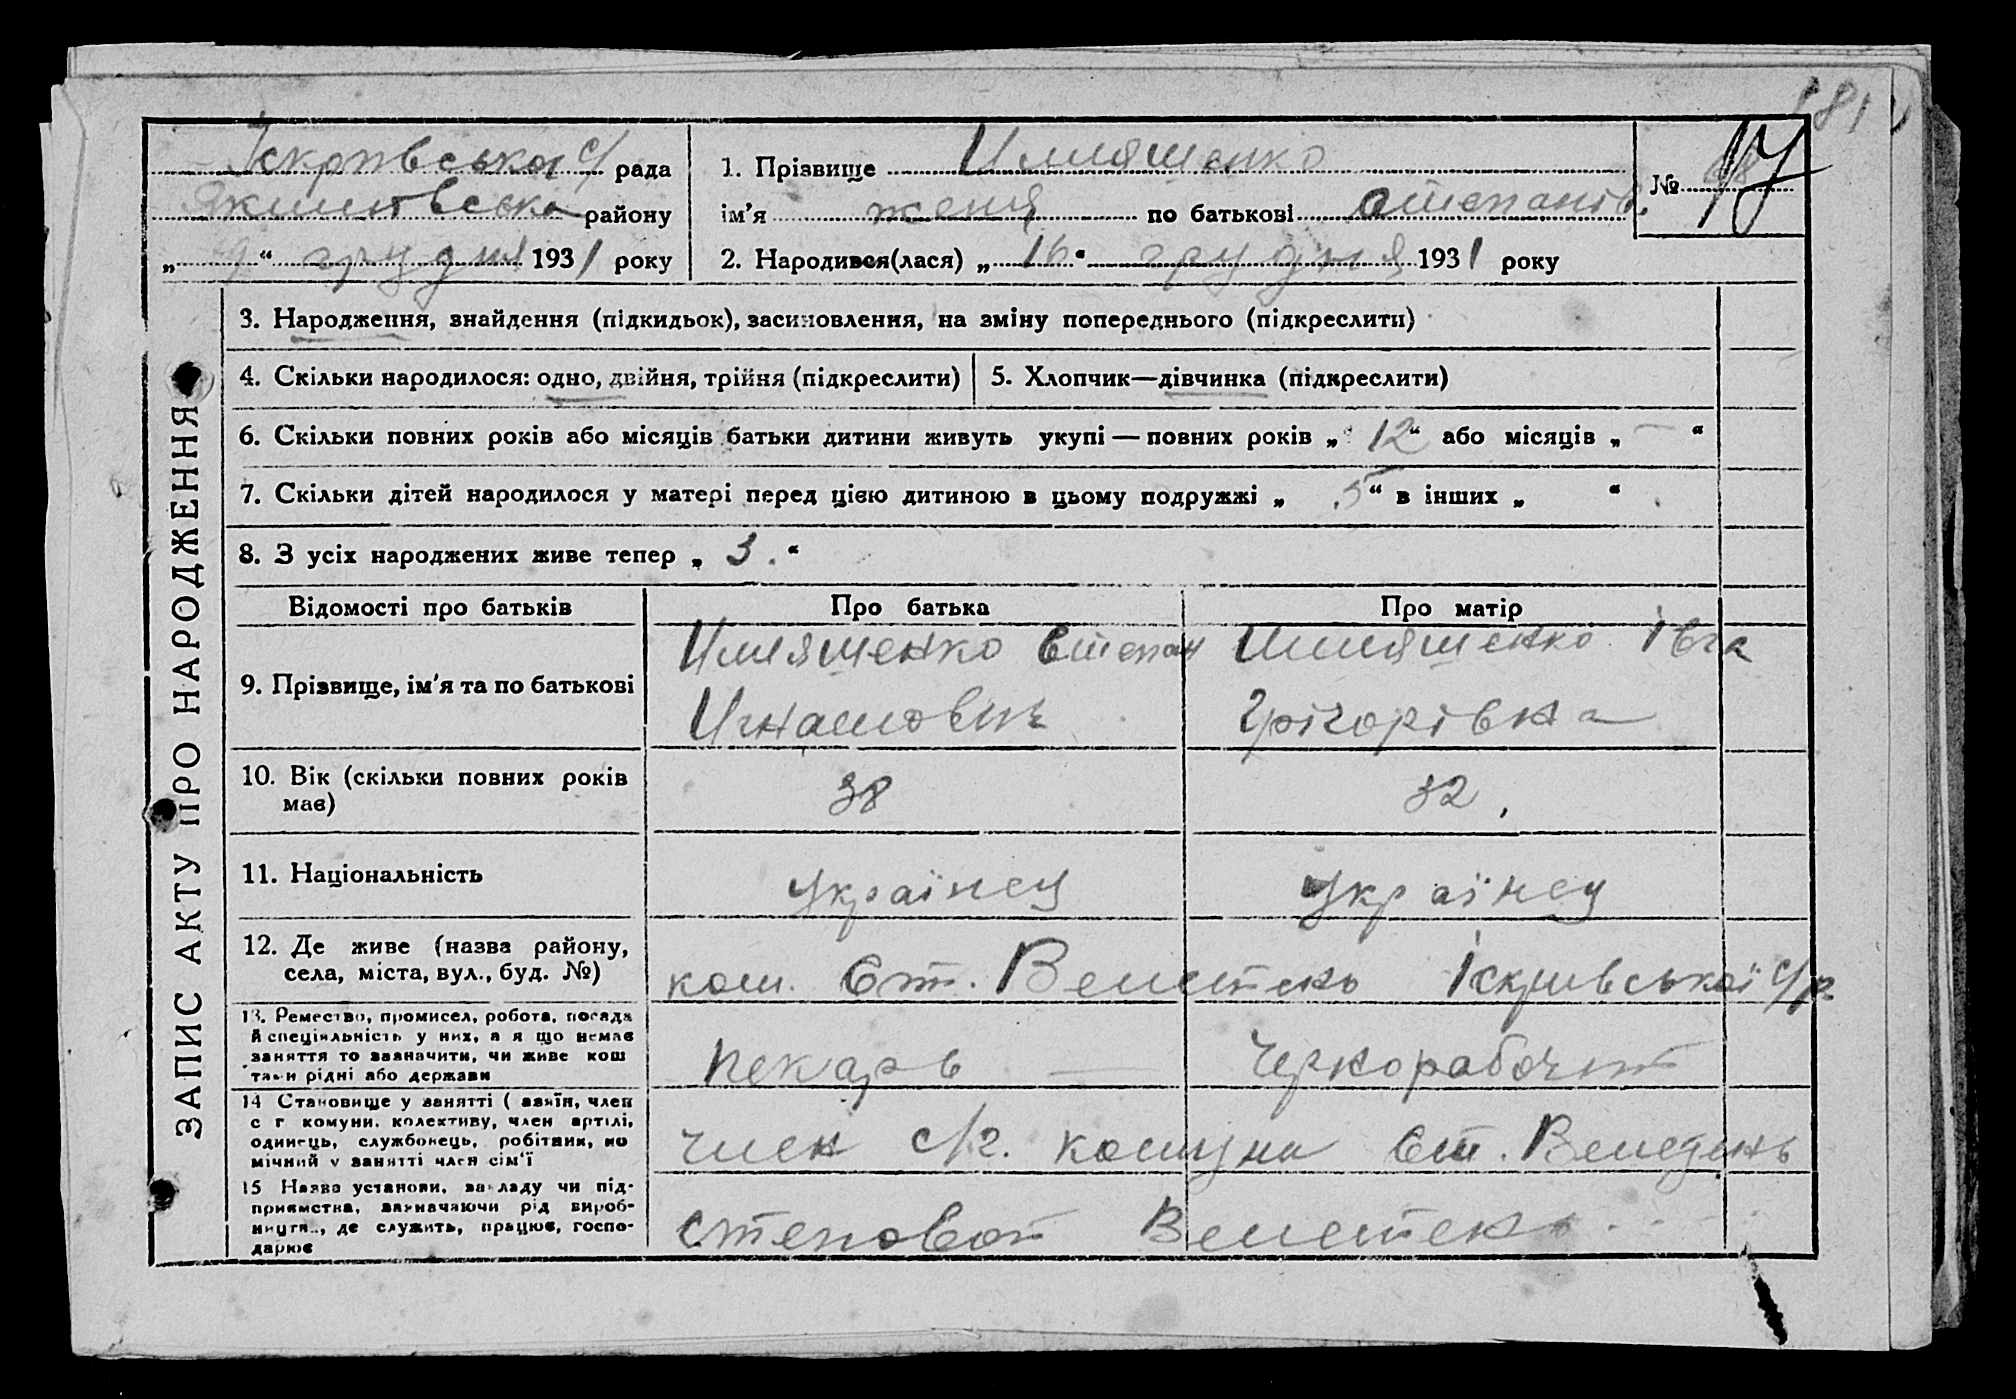 Іскрівська с/рада
району
„ 9 “ грудня 1931 року
1. Прізвище Илляшенко
ім'я Женя по батькові Степанів.
2. Народився(лася) „ 16 “ грудня 1931 року
№
ЗАПИС АКТУ ПРО НАРОДЖЕННЯ
3. Народження, знайдення (підкидьок), засиновлення, на зміну попереднього (підкреслити)
4. Скільки народилося: одно, двійня, трійня (підкреслити)
5. Хлопчик—дівчинка (підкреслити)
6. Скільки повних років або місяців батьки дитини живуть укупі — повних років „ 12 “ або місяців „ — “
7. Скільки дітей народилося у матері перед цією дитиною в цьому подружжі „ 5 “ в інших „ “
8. З усіх народжених живе тепер „ 3. “
Відомості про батьків
Про батька
Про матір
9. Прізвище, ім'я та по батькові
Илляшенко Степан
Игнатович
Илляшенко Івга
Грігорівна
10. Вік (скільки повних років
має)
38
32
11. Національність
Українец
Українец
12. Де живе (назва району,
села, міста, вул., буд. №)
ком. Ст. Іскрівської с/р
13. Ремество, промисел, робота, посада
й спеціяльність у них, а я що немає
заняття то зазначити, чи живе кош
тами рідні або держави
пекарь —
Чернорабочий
14 Становище у занятті (хазяїн, член
с г комуни, колективу, член артілі,
одинець, службовець, робітник, по
мічний у занятті член сім'ї
член с/г. комуни Ст.
15 Назва установи, закладу чи під-
приємства, зазначаючи рід вироб-
ництв.., де служить, працює, госпо-
дарює
степовой